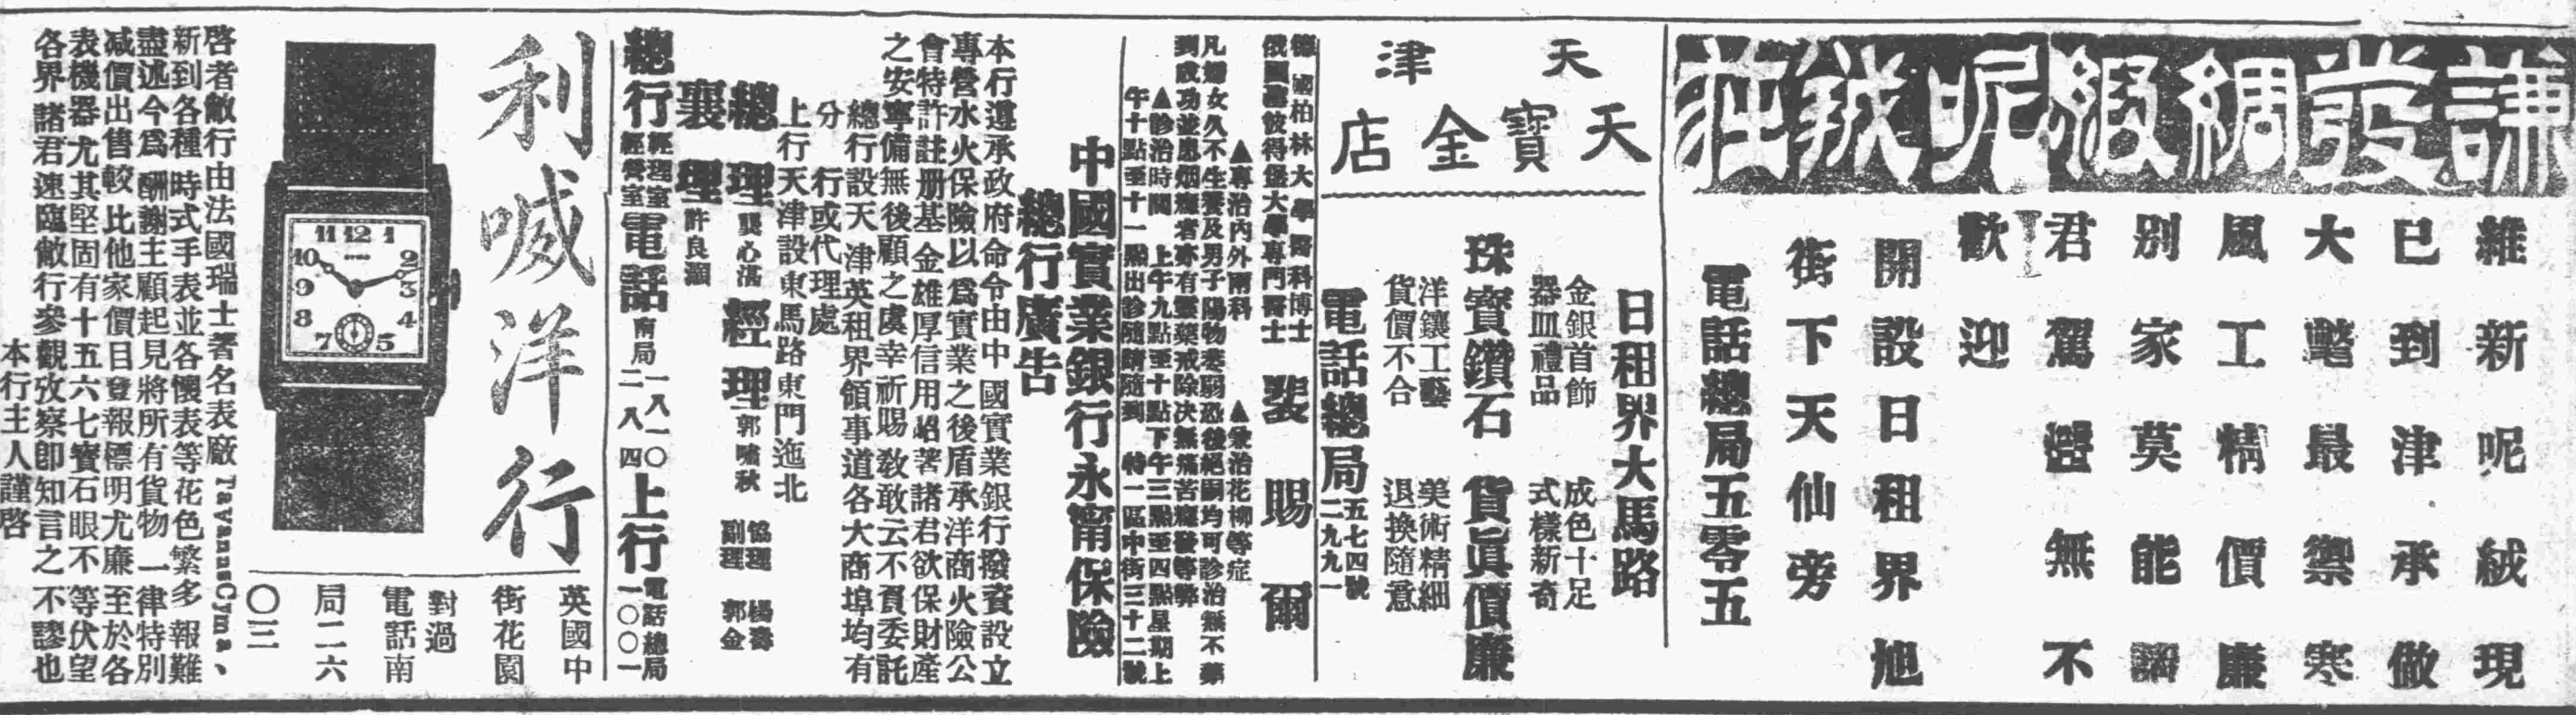 謙發綢緞呢絨莊
維新呢絨現
已到津承做
大氅最禦寒
風工精價廉
別家莫能
君駕無不
歡迎
開設日租界旭
街下天仙旁
電話總局五零五
天津
天寶金店
日租界大馬路
金銀首飾 成色十足
器皿禮品 式樣新奇
珠寶鑽石 貨眞價廉
洋鑲工藝 美術精細
貨價不合 退換隨意
電話總局五七四號 二九九一
德國柏林大學醫科博士
俄國聖彼得堡大學專門醫士
裴賜爾
▲專治內外兩科 ▲兼治花柳等症
凡婦女久不生養及男子陽物寒弱恐後絕嗣均可診治無不藥
到成功並患烟癮者亦有靈藥戒除決無痛苦癮發等弊
▲診治時間 上午九點至十點下午三點至四點星期上
午十點至十一點出診隨請隨到 特一區中街三十二號
中國實業銀行永甯保險
總行廣告
本行遵承政府命令由中國實業銀行撥資設立
專營水火保險以爲實業之後盾承洋商火險公
會特許註册基金雄厚信用昭著諸君欲保財產
之安寧備無後顧之虞幸祈賜敎敢云不負委託
總行設天津英租界領事道各大商埠均有
分行或代理處
上行天津設東馬路東門迤北
總理 龔心湛 經理 郭嘯秋 協理 楊壽
襄理 許良灝 副理 郭金
總行 經理室 經營室 電話南局 一八一〇 二八四 上行 電話總局 一〇〇一
利喊洋行
英國中
街花園
對過
電話南
局二六
〇三
啓者敝行由法國瑞士著名表廠 TavannsCyma、
新到各種時式手表並各懷表等花色繁多報難
盡述今爲酬謝主顧起見將所有貨物一律特別
減價出售較比他家價日登報標明尤廉至於各
表機器尤其堅固有十五六七寶石眼不等伏望
各界諸君速臨敝行參觀攷察即知言之不謬也
本行主人謹啓
11 12 1
10 2
9 3
8 4
7 5